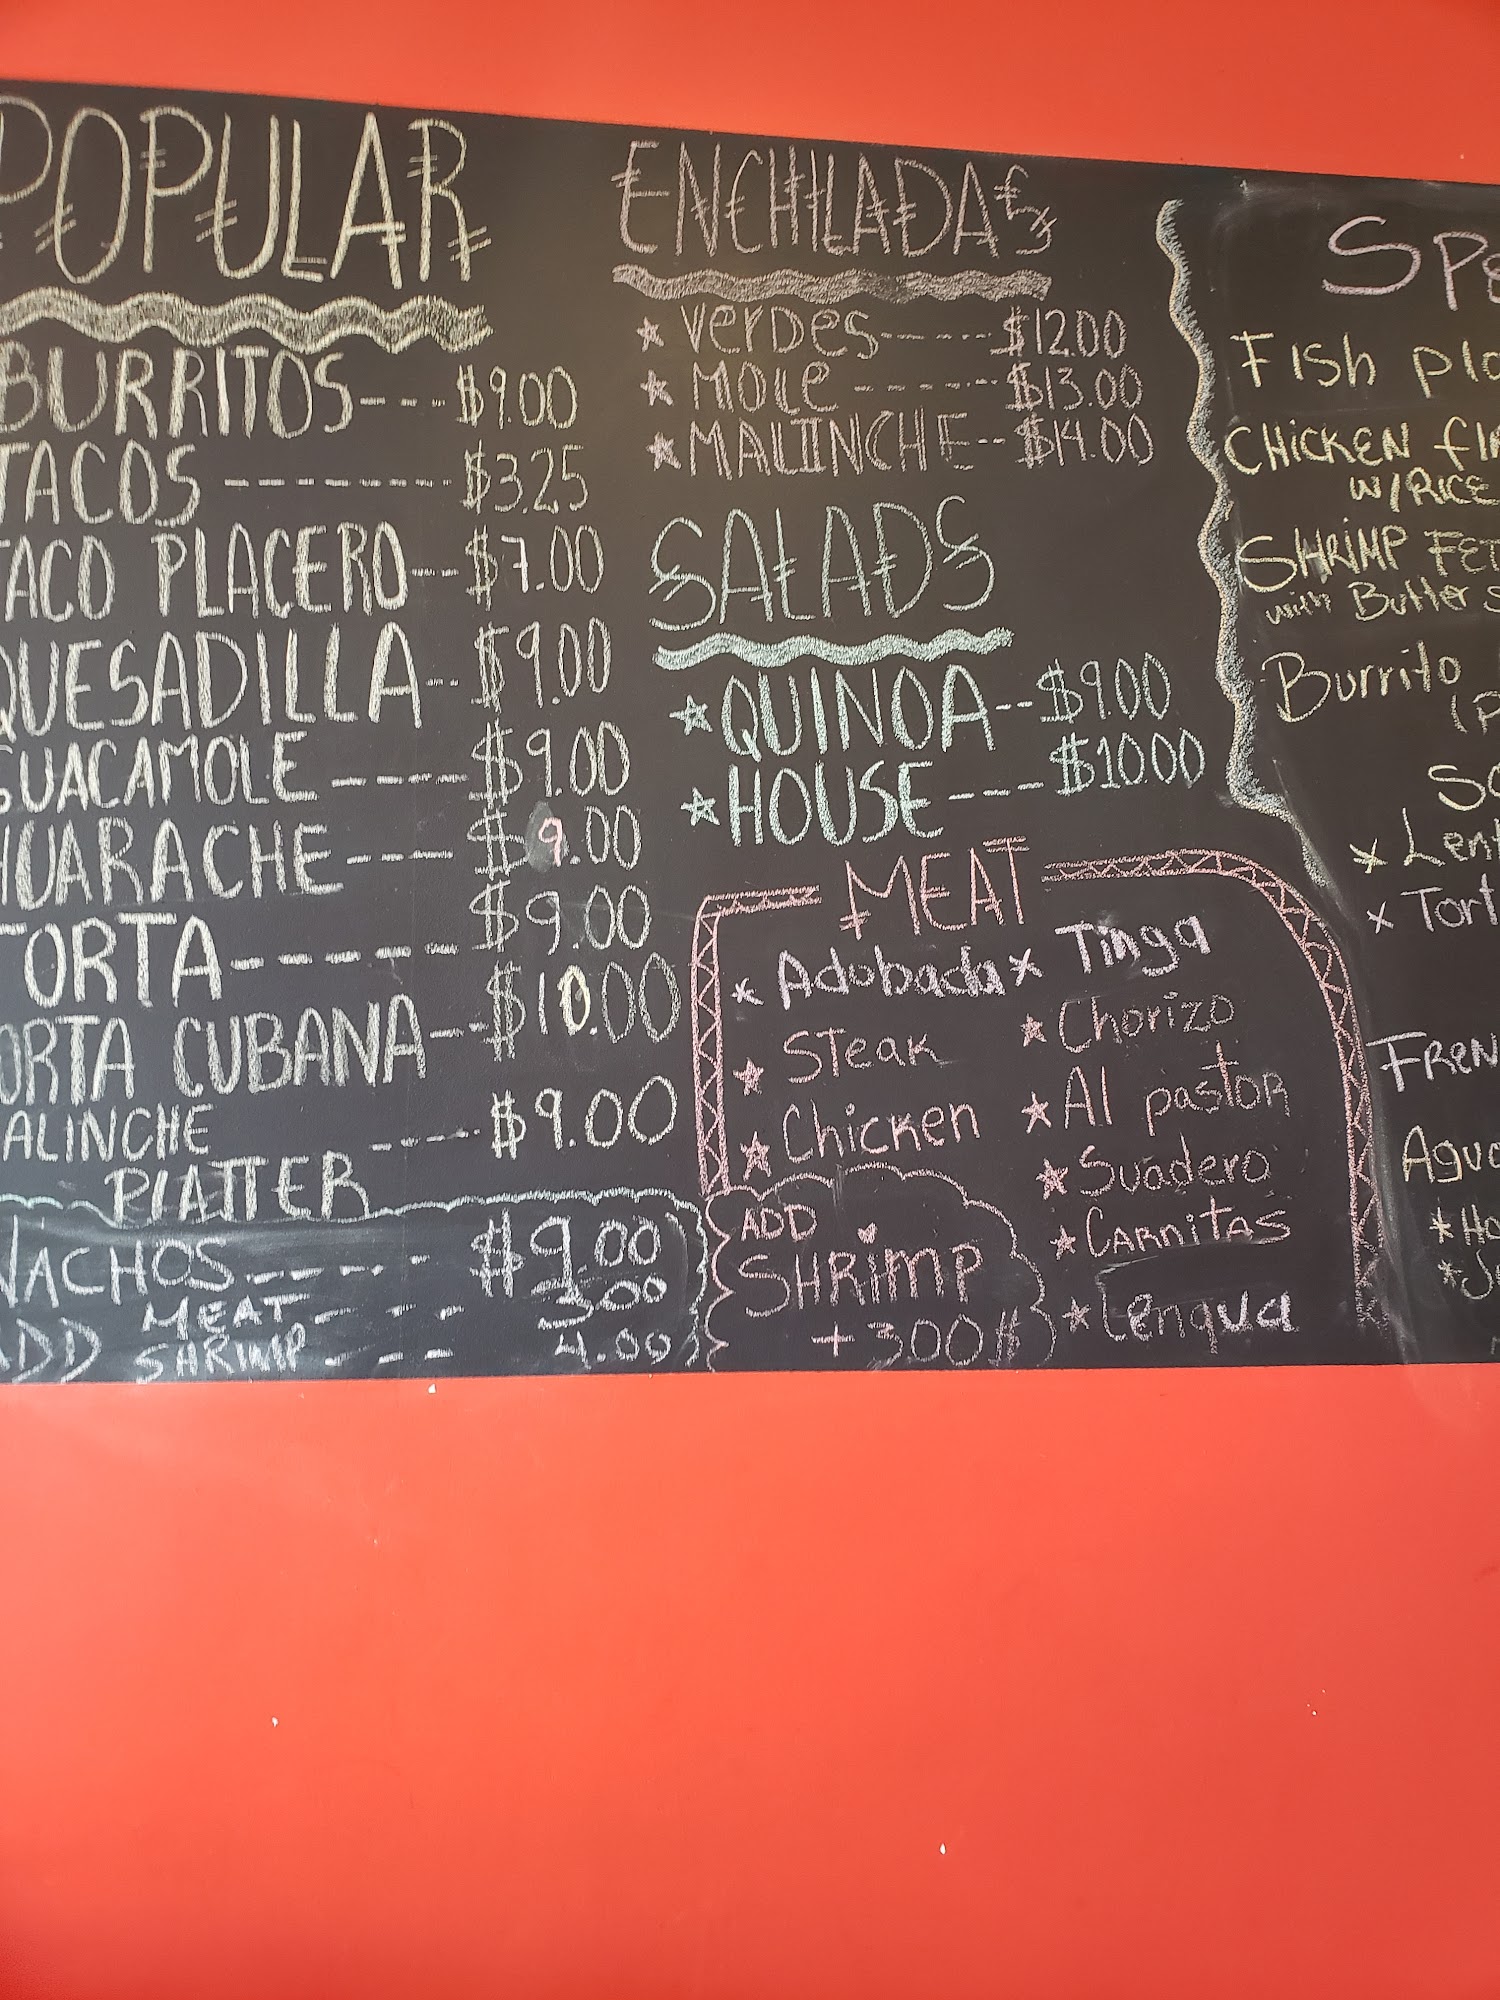 POPULAR
BURRITOS---$9.00
TACOS --------$3.25
TACO PLACERO--$7.00
QUESADILLA--$9.00
GUACAMOLE----$9.00
HUARACHE---$9.00
TORTA------$9.00
TORTA CUBANA--$10.00
ALINCHE
PLATTER ----$9.00
NACHOS-----$9.00
ADD MEAT---- 3.00
SHRIMP---- 4.00
ENCHILADAS
VERDES-----$12.00
MOLE ------$13.00
MALINCHE--$14.00
SALADS
QUINOA--$9.00
HOUSE----$10.00
MEAT
Adobada
Steak
Chicken
Tinga
Chorizo
Al pastor
Suadero
CARNITAS
Lengua
ADD
SHRIMP
+300$
Spe
Fish pla
CHICKEN
W/RICE
SHRIMP FET
with Butter S
Burrito
(P
So
Lent
Tort
FREN
Agua
Ho